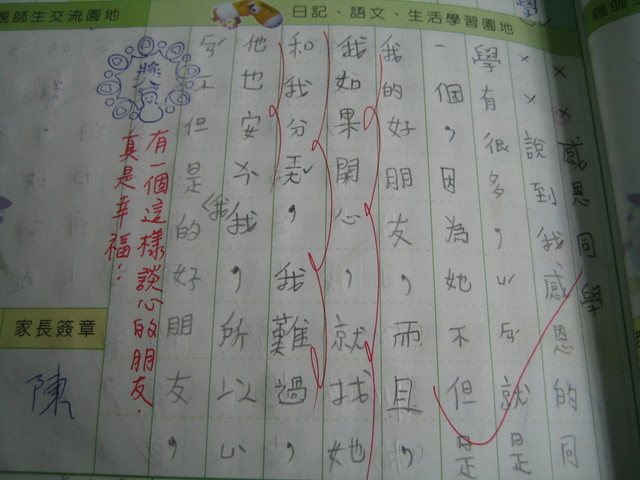 師生交流園地
日記、語文、生活學習園地
感恩同學
××說到我感恩的同
學有很多，心就是
一個，因為她不但是
我的好朋友，而且，
我如果開心，就找她
和我分享，我難過，
他也安我，所以心
不但是我的好朋友，
有一個這樣談心的朋友.
真是幸福!
家長簽章
陳